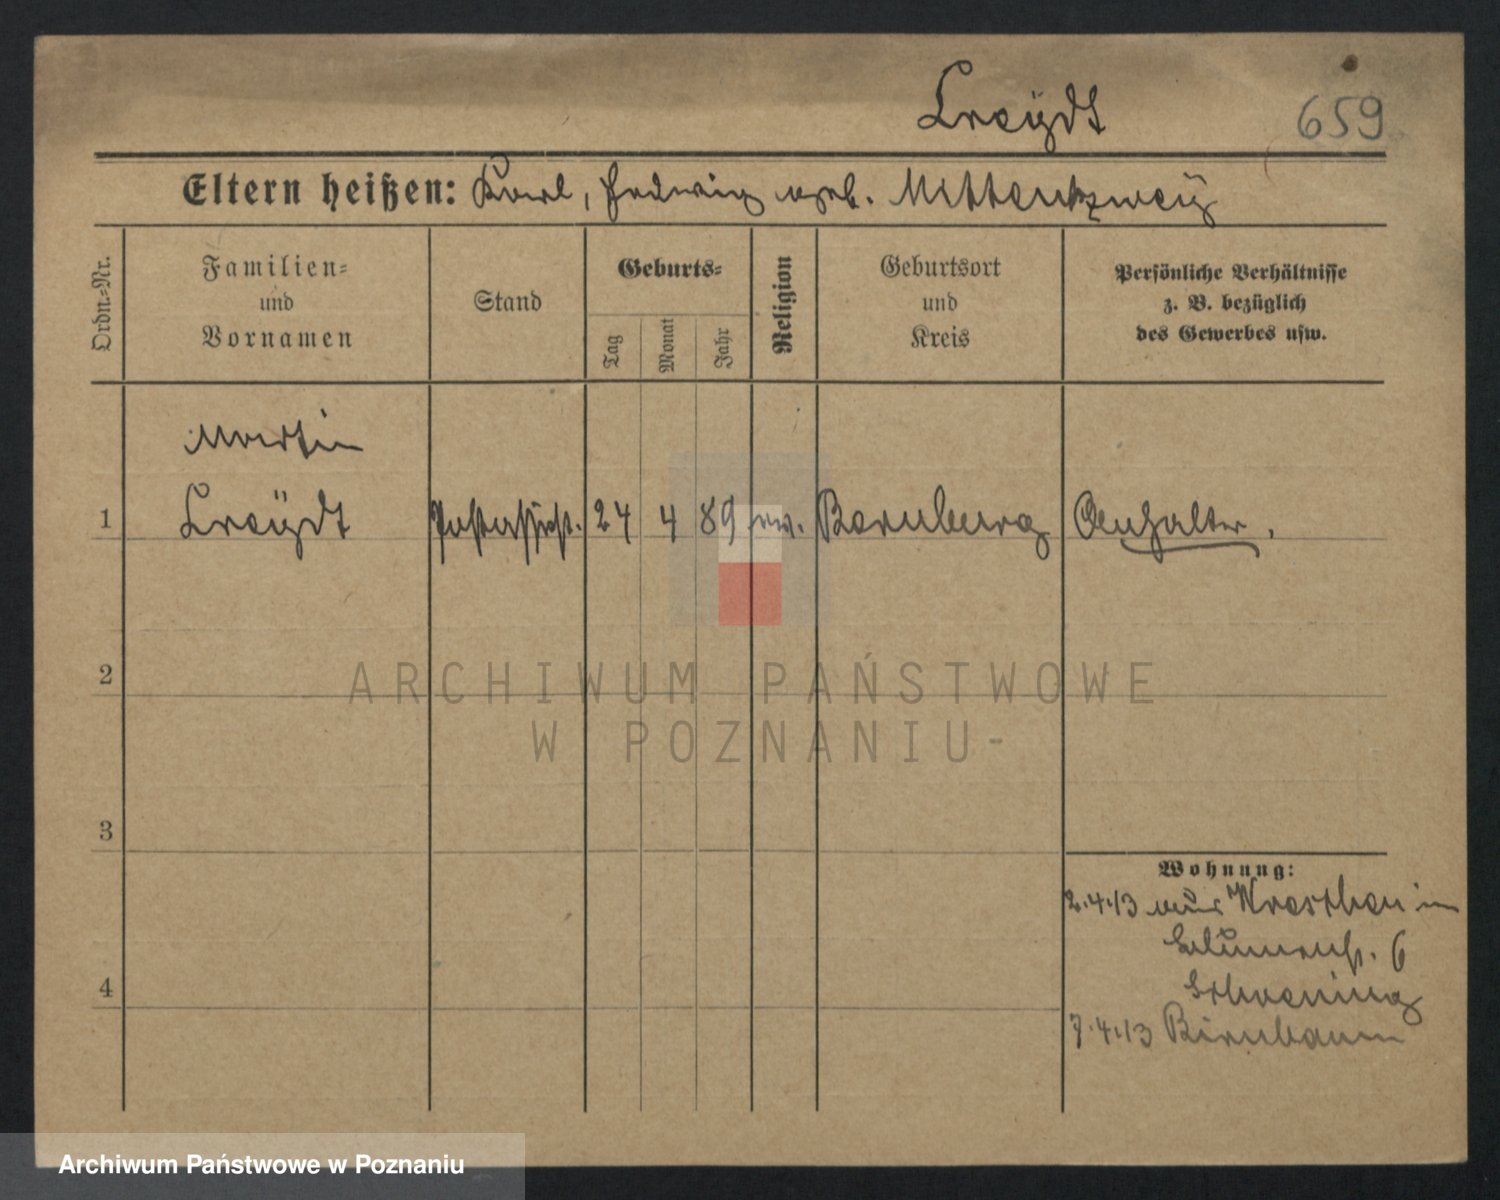 Creydt 659
Eltern heißen: Karl, Hedwig geb. Mittentzwey
Ordn.-Nr.
Familien-
und
Vornamen
Stand
Geburts-
Tag
Monat
Jahr
Religion
Geburtsort
und
Kreis
Persönliche Verhältnisse
z. B. bezüglich
des Gewerbes usw.
Martin
1 Creydt Postassist. 24 4 89 ev. Bernburg Anhalter.
2
3
4
Wohnung:
2.4.13 aus
6
7.4.13 Birnbaum
ARCHIWUM PAŃSTWOWE
W POZNANIU-
Archiwum Państwowe w Poznaniu